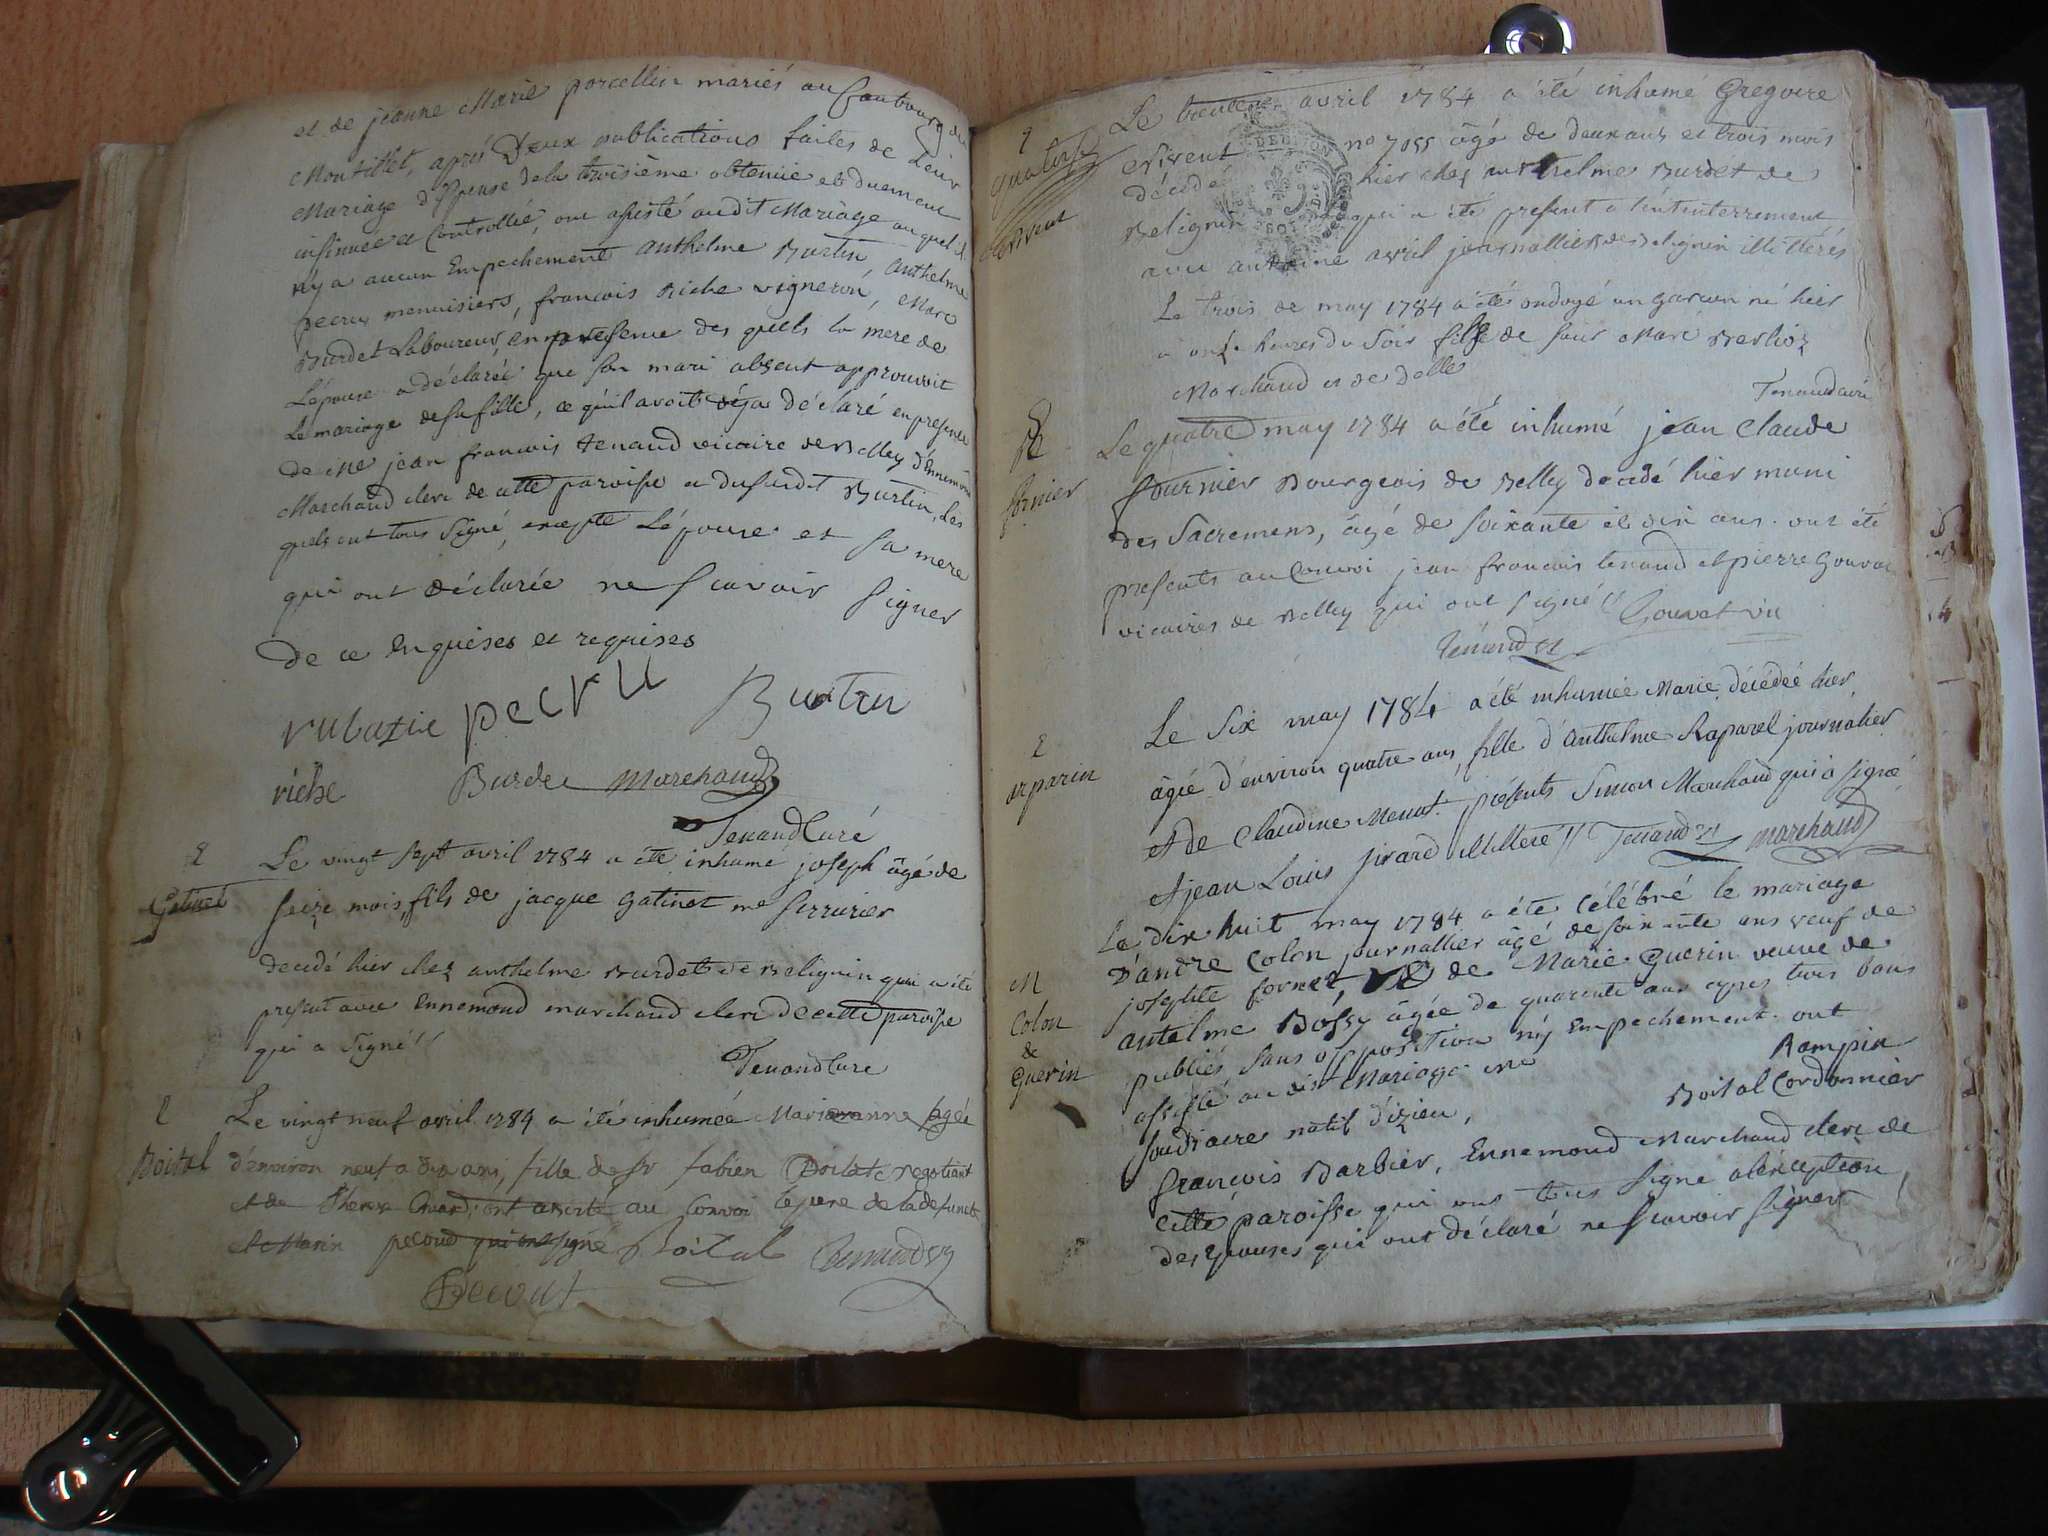 et de jeanne Marie porcellin mariés au faubourg du
Montillet, aprés Deux publications faites de Leur
Mariage dispense dela troisième obtenüe et duement
insinuée et Controllée, ont assisté audit Mariage auquel il
n'y a aucun Empechement anthelme Burtin, anthelme
pecru menuisiers, francois Riche vigneron, Marc
Burdet Laboureur, en presence des quels la mere de
L'épouse a déclaré que son mari absent approuvoit
Le mariage de sa fille, ce qu'il avoit déja déclaré en presence
de Me jean francois tenand vicaire de Belley d'Ennemond
Marchand clerc de cette paroisse et dususdit Burtin, Les
quels ont tous signé, excepté L'épouse et sa mere
qui ont déclarée ne scavoir signer
de ce Enquises et requises
rubatie pecru Burtin
riche Burdet Marchand
Tenand Curé
Gatinet
Le vingt sept avril 1784 a été inhumé joseph âgé de
seize mois, fils de jacque gatinet me serrurier
decédé hier chez anthelme Burdet de Belignin qui a été
present avec Ennemond marchand clerc de cette paroisse
qui a signé //
Tenand Curé
Boital
Le vingt neuf avril 1784 a été inhumée Marianne âgée
d'environ neuf a dix ans, fille de sr fabien Boital negotiant
et de Therese ont assisté au Convoi le pere de la defuncte
et Marin pecoud qui ont signé Boital Tenand
Pecout
Le trente avril 1784 a été inhumé Gregoire
no 7055 âgé de deux ans et trois mois
décédé hier chez anthelme Burdet de
Belignin qui a été present a l'ententerrement
avec antoine avril journallier de Belignin illitterés
Le trois de may 1784 a été ondoyé un garcon né hier
a onze heures du soir fils de sieur Marc Berlioz
Marchand et de Delle
Tenand curé
fornier
Le quatre may 1784 a été inhumé jean Claude
fournier Bourgeois de Belley decedé hier muni
des Sacremens, âgé de soixante et dix ans. ont été
presents au Convoi jean francois tenand et pierre Gouvet
vicaires de Belley qui ont signé // Gouvet vic
Tenand
Le Six may 1784 a été inhumée Marie, décédée hier,
âgée d'environ quatre ans, fille d'anthelme Raparel journalier
et de Claudine Menut. présents Simon Marchand qui a signé
et jean Louis jirard illitteré // Tenand Marchand
M
Colon
&
Guérin
Le dix huit may 1784 a été célébré le mariage
D'andré Colon journallier âgé de soixante ans veuf de
josephte fornet, & de Marie Guerin veuve de
antelme Bossy âgée de quarente ans apres trois bans
publiés sans opposition n'y Empechement. ont
assisté au dit Mariage me Rampin
soudiacre natif d'izieu, Boital Cordonnier
françois Barbier, Ennemond Marchand clerc de
cette paroisse qui ont tous signé a l'exception
des Epouses qui ont déclaré ne scavoir signer